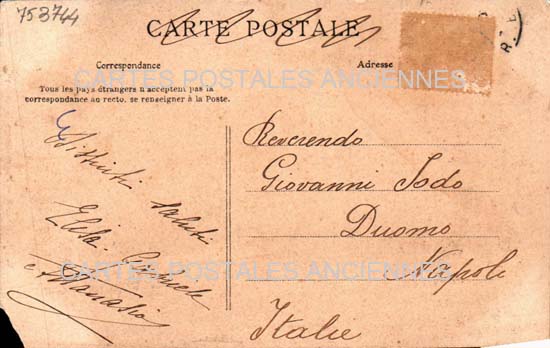 753744
CARTE POSTALE
Correspondance
Adresse
CARTES POSTALES ANCIENNES
Tous les pays étrangers n'acceptent pas la
correspondance au recto, se renseigner à la Poste.
Distinti saluti
Elisa
Reverendo
Giovanni Jodo
Duomo
Napoli
CARTES POSTALES ANCIENNES
Italie